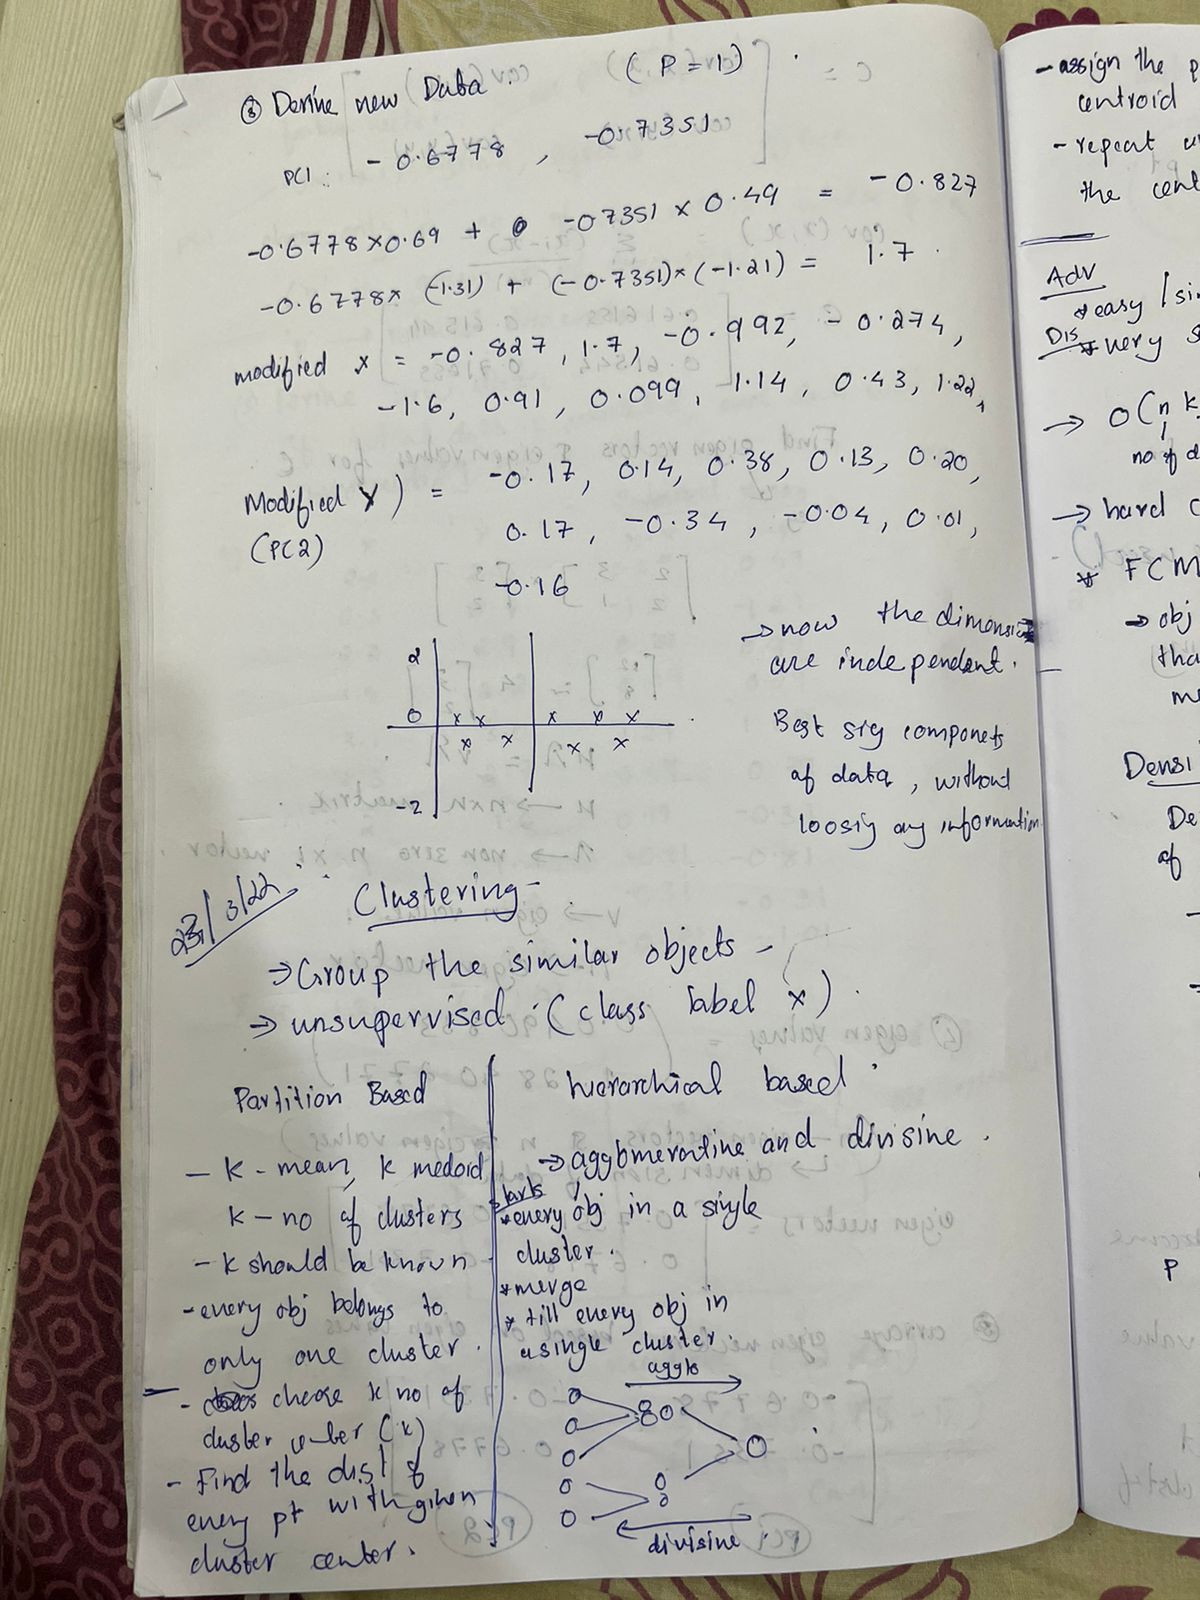 ⑧ Derive new Data. (P = 1)
PC1: -0.6778, -0.7351
-0.6778×0.69 + -0.7351 × 0.49 = -0.827
-0.6778× (-1.31) + (-0.7351)×(-1.21) = 1.7
modified x = -0.827, 1.7, -0.992, -0.274,
-1.6, 0.91, 0.099, 1.14, 0.43, 1.22,
Modified Y) = -0.17, 0.14, 0.38, 0.13, 0.20,
(PC2) 0.17, -0.34, -0.04, 0.01,
-0.16
→ now the dimensi
are independent.
Best sig componets
of data, without
loosig any information
2
0 x x x x x
x x x x
-2
23/3/22
Clustering -
→ Group the similar objects -
→ unsupervised. (class label x).
Partition Based
- k-mean, k medoid
k - no of clusters
- k should be known
- every obj belongs to
only one cluster.
- choose k no of
cluster center (k)
- Find the dist of
every pt with given
cluster center.
hierarchical based
→ agglomerative and divisive.
starts
* every obj in a single
cluster.
* merge
* till every obj in
a single cluster.
agglo
divisive
- assign the p
centroid
- repeat u
the cent
Adv
* easy / si
Dis * very s
→ O(n k
no of d
→ hard c
* FCM
→ obj
tha
me
Densi
De
of
P